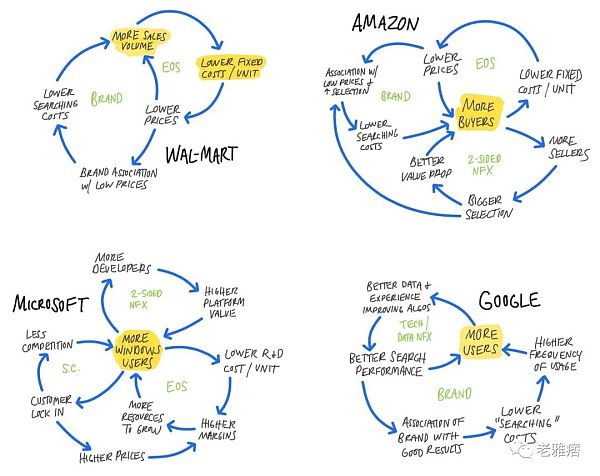 MORE SALES
VOLUME
EOS
LOWER FIXED
COSTS/UNIT
LOWER
SEARCHING
COSTS
BRAND
LOWER
PRICES
BRAND ASSOCIATION
W/LOW PRICES
WAL-MART
AMAZON
LOWER
PRICES
EOS
ASSOCIATION W/
LOW PRICES +
↑ SELECTION
BRAND
LOWER FIXED
COSTS/UNIT
MORE
BUYERS
LOWER
SEARCHING
COSTS
BETTER
VALUE PROP
2-SIDED
NFX
MORE
SELLERS
BIGGER
SELECTION
MICROSOFT
MORE
DEVELOPERS
2-SIDED
NFX
HIGHER
PLATFORM
VALUE
LESS
COMPETITION
MORE
WINDOWS
USERS
LOWER R+D
COST/UNIT
S.C.
EOS
CUSTOMER
LOCK IN
MORE
RESOURCES
TO GROW
HIGHER
MARGINS
HIGHER PRICES
GOOGLE
BETTER DATA +
EXPERIENCE
IMPROVING ALGOS
TECH/
DATA NFX
MORE
USERS
BETTER SEARCH
PERFORMANCE
HIGHER
FREQUENCY
OF USAGE
BRAND
ASSOCIATION OF
BRAND WITH
GOOD RESULTS
LOWER
"SEARCHING"
COSTS
老雅痞